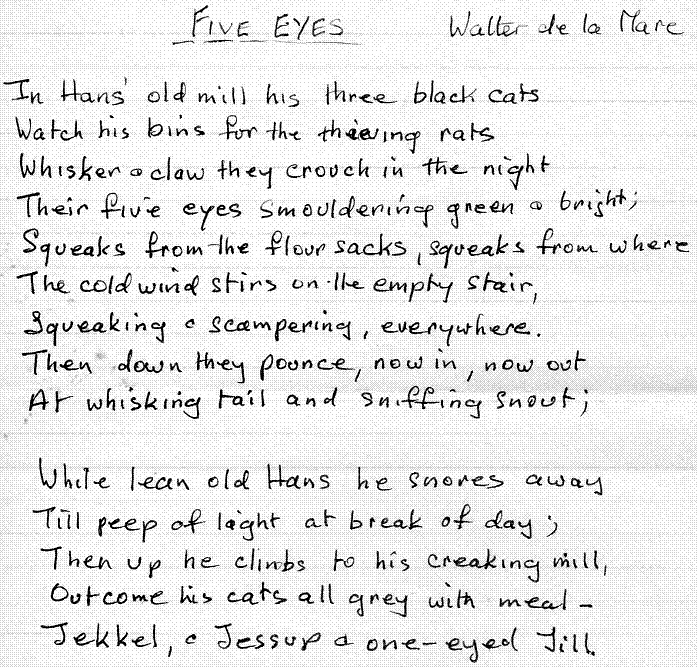 FIVE EYES Walter de la Mare
In Hans' old mill his three black cats
Watch his bins for the thieving rats
Whisker & claw they crouch in the night
Their five eyes smouldering green & bright;
Squeaks from the flour sacks, squeaks from where
The cold wind stirs on the empty stair,
Squeaking & scampering, everywhere.
Then down they pounce, now in, now out
At whisking tail and sniffing snout;
While lean old Hans he snores away
Till peep of light at break of day;
Then up he climbs to his creaking mill,
Out come his cats all grey with meal -
Jekkel, & Jessup & one-eyed Jill.